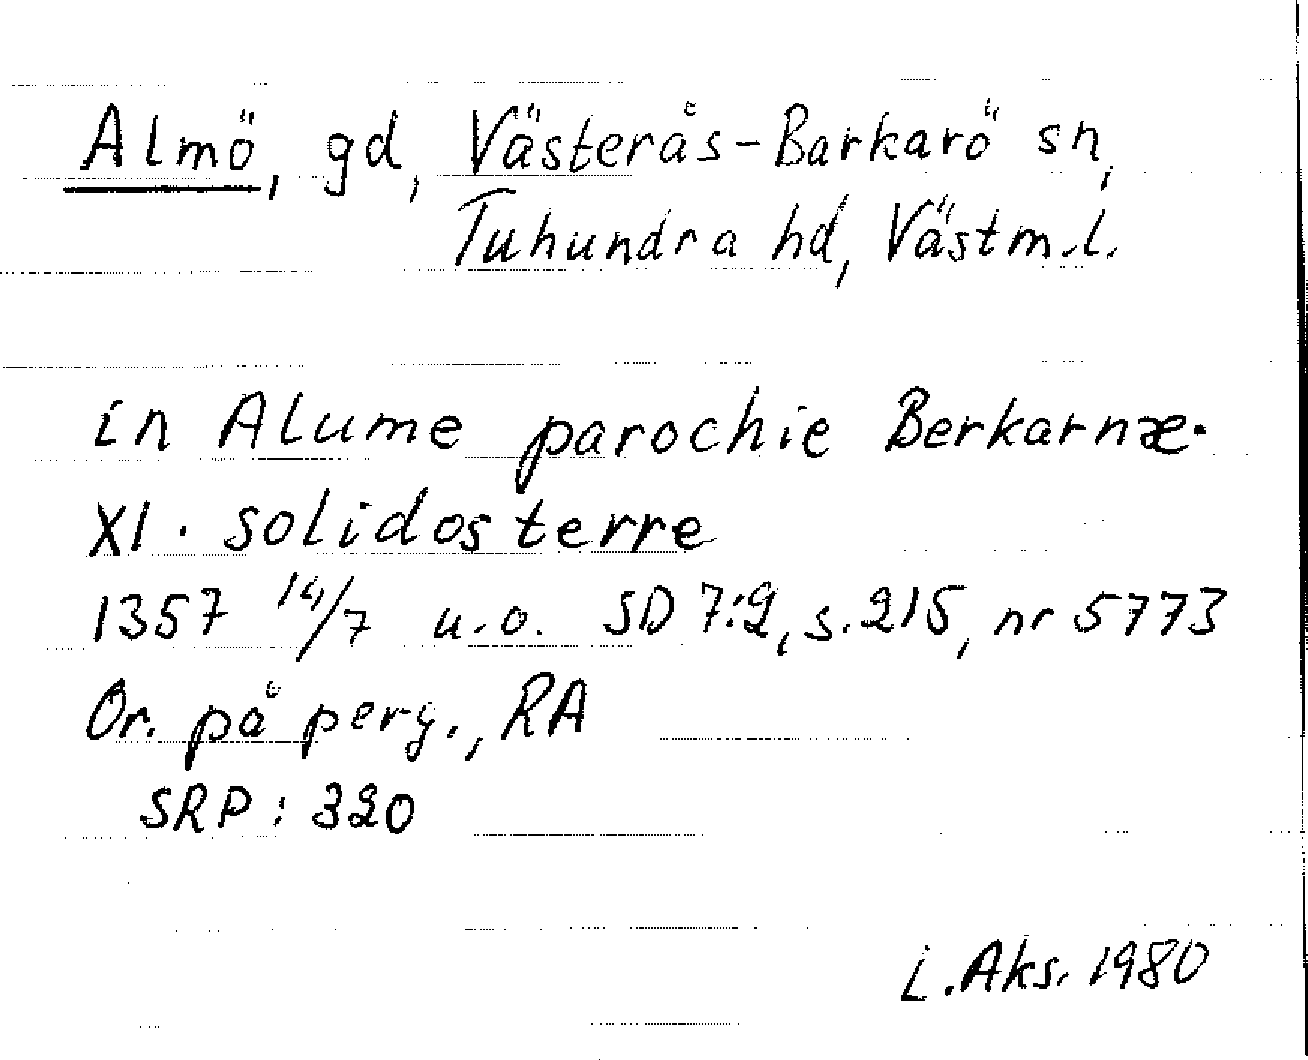 Almö, gd, Västerås-Barkarö sn,
Tuhundra hd, Västm.l.
in Alume parochie Berkarnæ.
XI. solidos terre
1357 14/7 u.o. SD 7:2, s. 215, nr 5773
Or. på perg., RA
SRP: 320
L. Aks. 1980